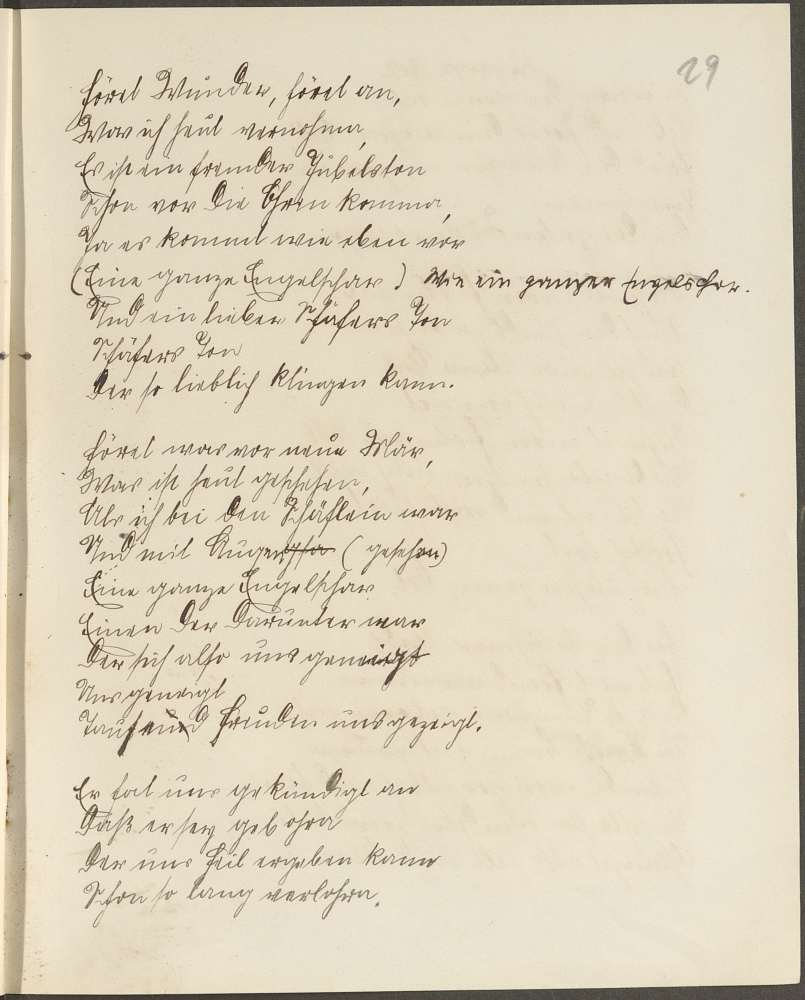 29
Höret Wunder, höret an,
Was ich heut vernohmen,
Es ist ein fremder Jubelston
Schon vor die Ohren kommen,
Ja es kommt wie eben vor
(Eine ganze Engelschar) Wie ein ganzer Engelschor.
Und ein lieber Schäfers Ton
Schäfers Ton
Der so lieblich klingen kann.
Höret was vor neue Mär,
Was ist heut geschehen,
Als ich bei den Schäflein war
Und mit Augen (gesehen)
Eine ganze Engelschar
Einen der darunter war
Der sich also uns geneigt
Uns geneigt
Tausend Freuden uns gezeigt.
Er hat uns gekündigt an
Daß er sey gebohren
Der uns Heil ergeben kann
Schon so lang verlohren.